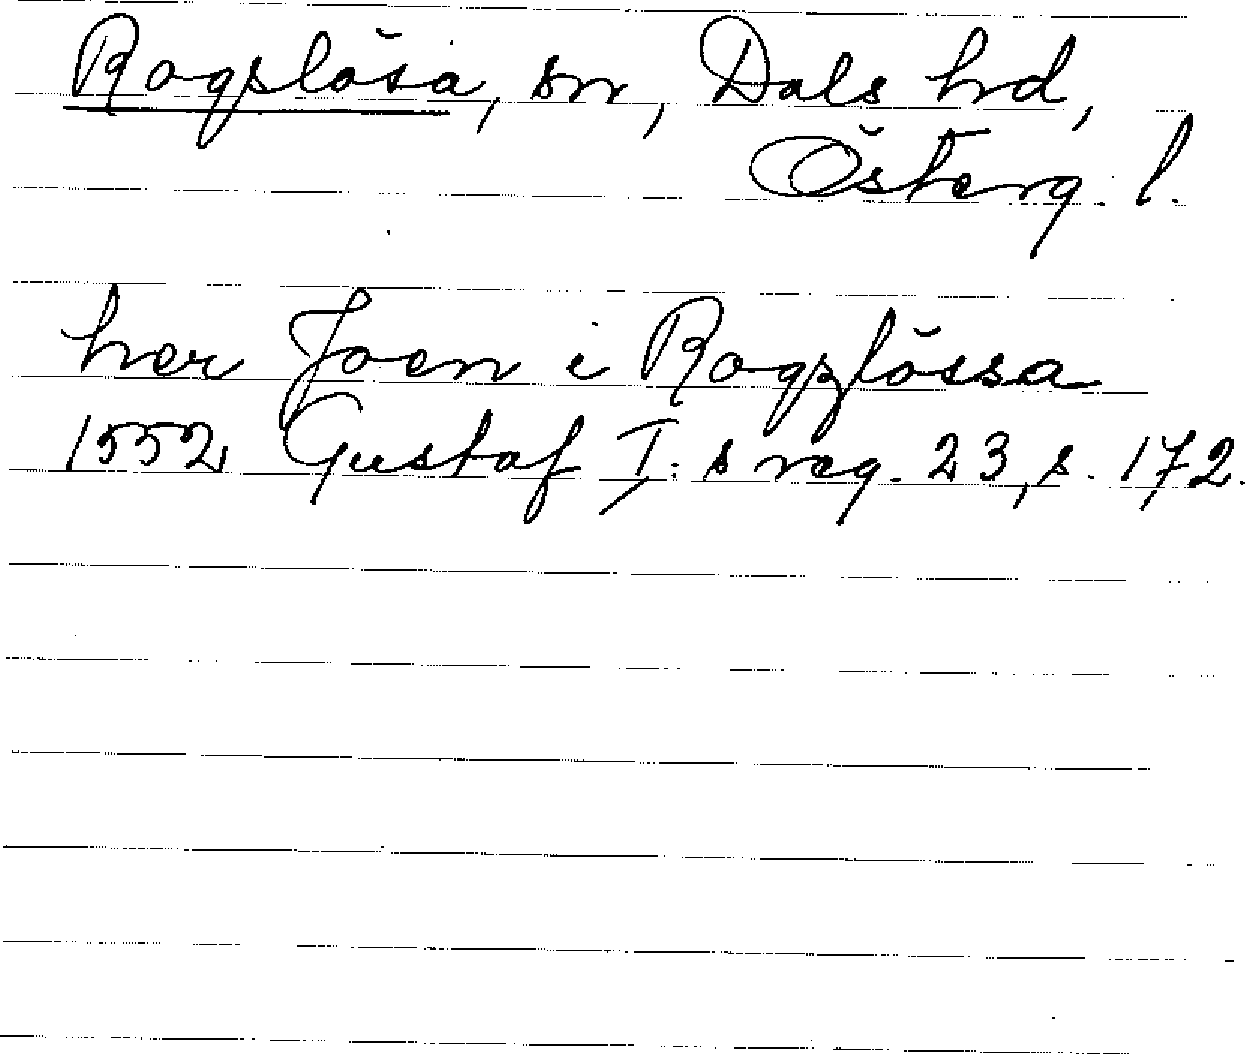 Rogslösa, sn, Dals hd,
Österg. l.
her Joen i Rogzlössa
1552 Gustaf I:s reg. 23, s. 172.